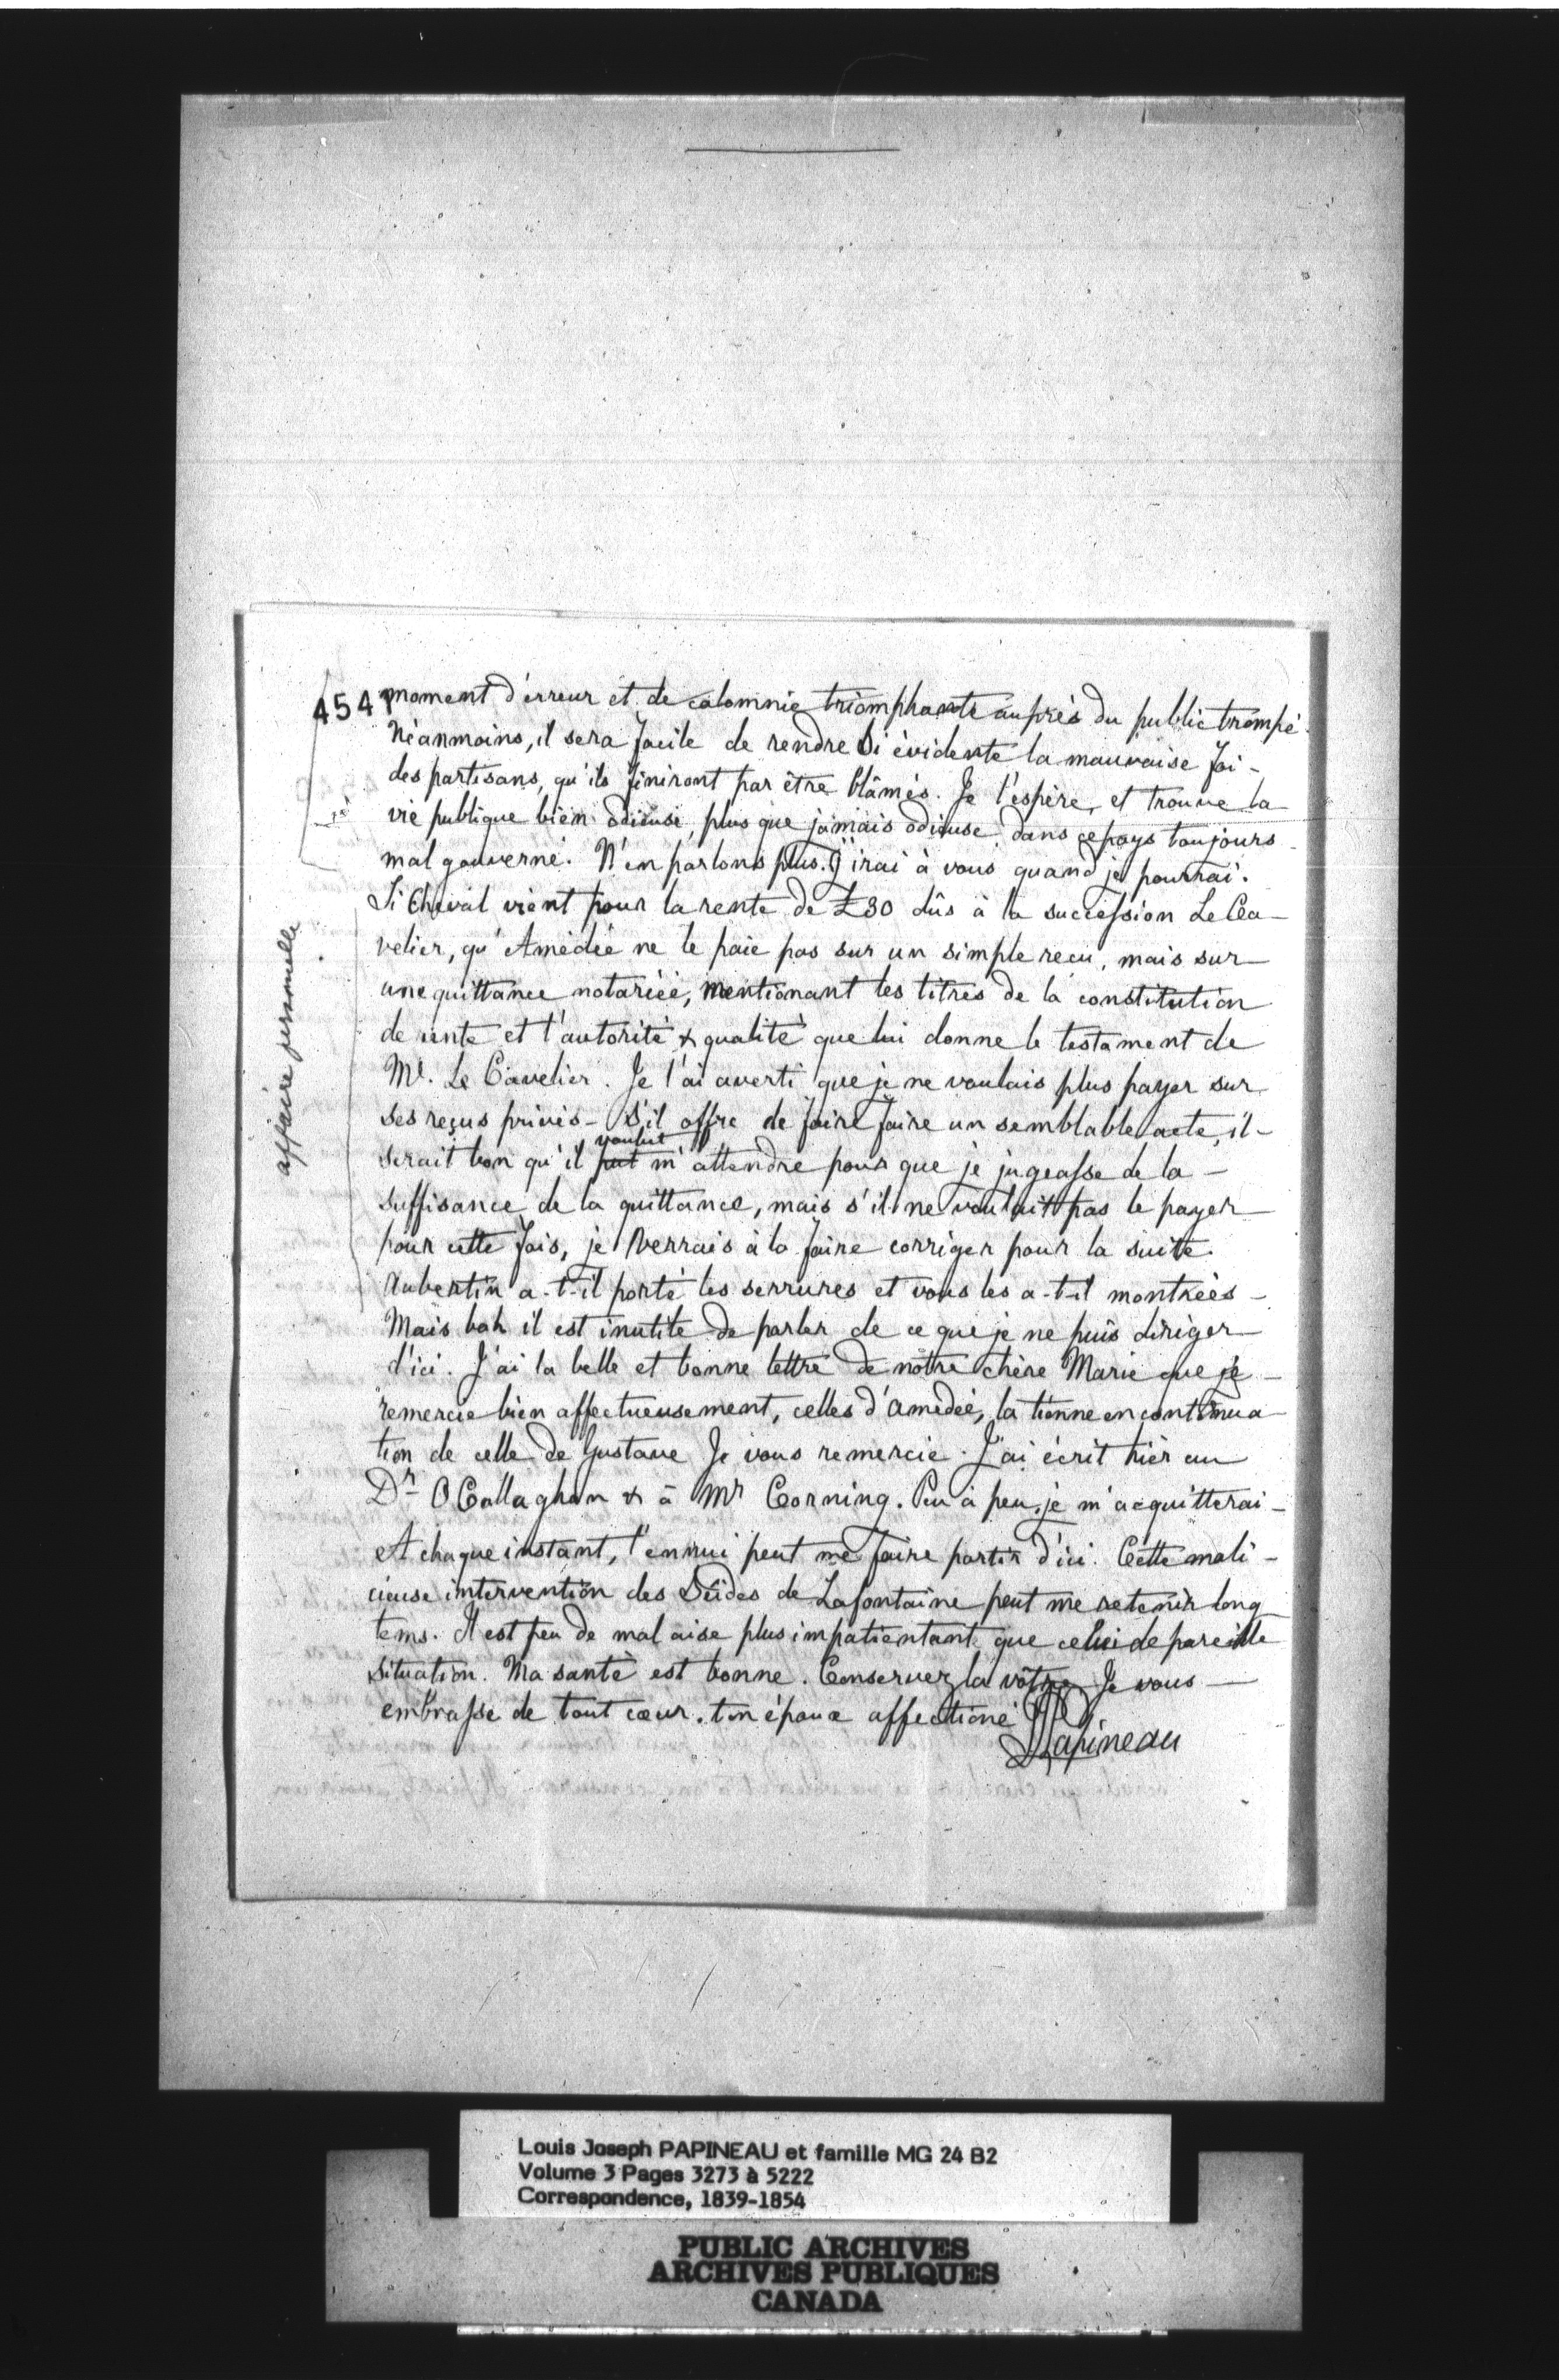 4541
moment d'erreur et de calomnie triomphante auprès du public trompé.
Néanmoins, il sera facile de rendre si évidente la mauvaise foi -
des partisans, qu'ils finiront par être blâmés. Je l'espère, et trouve la
vie publique bien odieuse, plus que jamais odieuse dans ce pays toujours
mal gouverné. N'en parlons plus. J'irai à vous quand je pourrai.
Si Cheval vient pour la rente de £30 dûs à la succession Le Ca-
velier, qu'Amédée ne le paie pas sur un simple recu, mais sur
une quittance notariée, mentionant les titres de la constitution
de rente et l'autorité & qualité que lui donne le testament de
Mr. Le Cavelier. Je l'ai averti que je ne voulais plus payer sur
ses reçus privés - S'il offre de faire faire un semblable acte, il -
voulut
serait bon qu'il put m'attendre pour que je jugeasse de la -
suffisance de la quittance, mais s'il ne voulait pas le payer
pour cette fois, je verrais à la faire corriger pour la suite.
Aubertin a-t-il porté les serrures et vous les a-t-il montrées -
Mais bah il est inutile de parler de ce que je ne puis diriger
d'ici. J'ai la belle et bonne lettre de notre chère Marie que je -
remercie bien affectueusement, celles d'Amédée, la tienne en continua
tion de celle de Gustave Je vous remercie. J'ai écrit hier au
Dr O Callaghan & à Mr Corning. Peu à peu, je m'acquitterai -
A chaque instant, l'ennui peut me faire partir d'ici. Cette mali -
cieuse intervention des Séides de Lafontaine peut me retenir long
tems. Il est peu de mal aise plus impatientant que celui de pareille
situation. Ma santé est bonne. Conservez la vôtre. Je vous
embrasse de tout cœur. ton époux affectioné
LJPapineau
affaire personnelle
Louis Joseph PAPINEAU et famille MG 24 B2
Volume 3 Pages 3273 à 5222
Correspondence, 1839-1854
PUBLIC ARCHIVES
ARCHIVES PUBLIQUES
CANADA